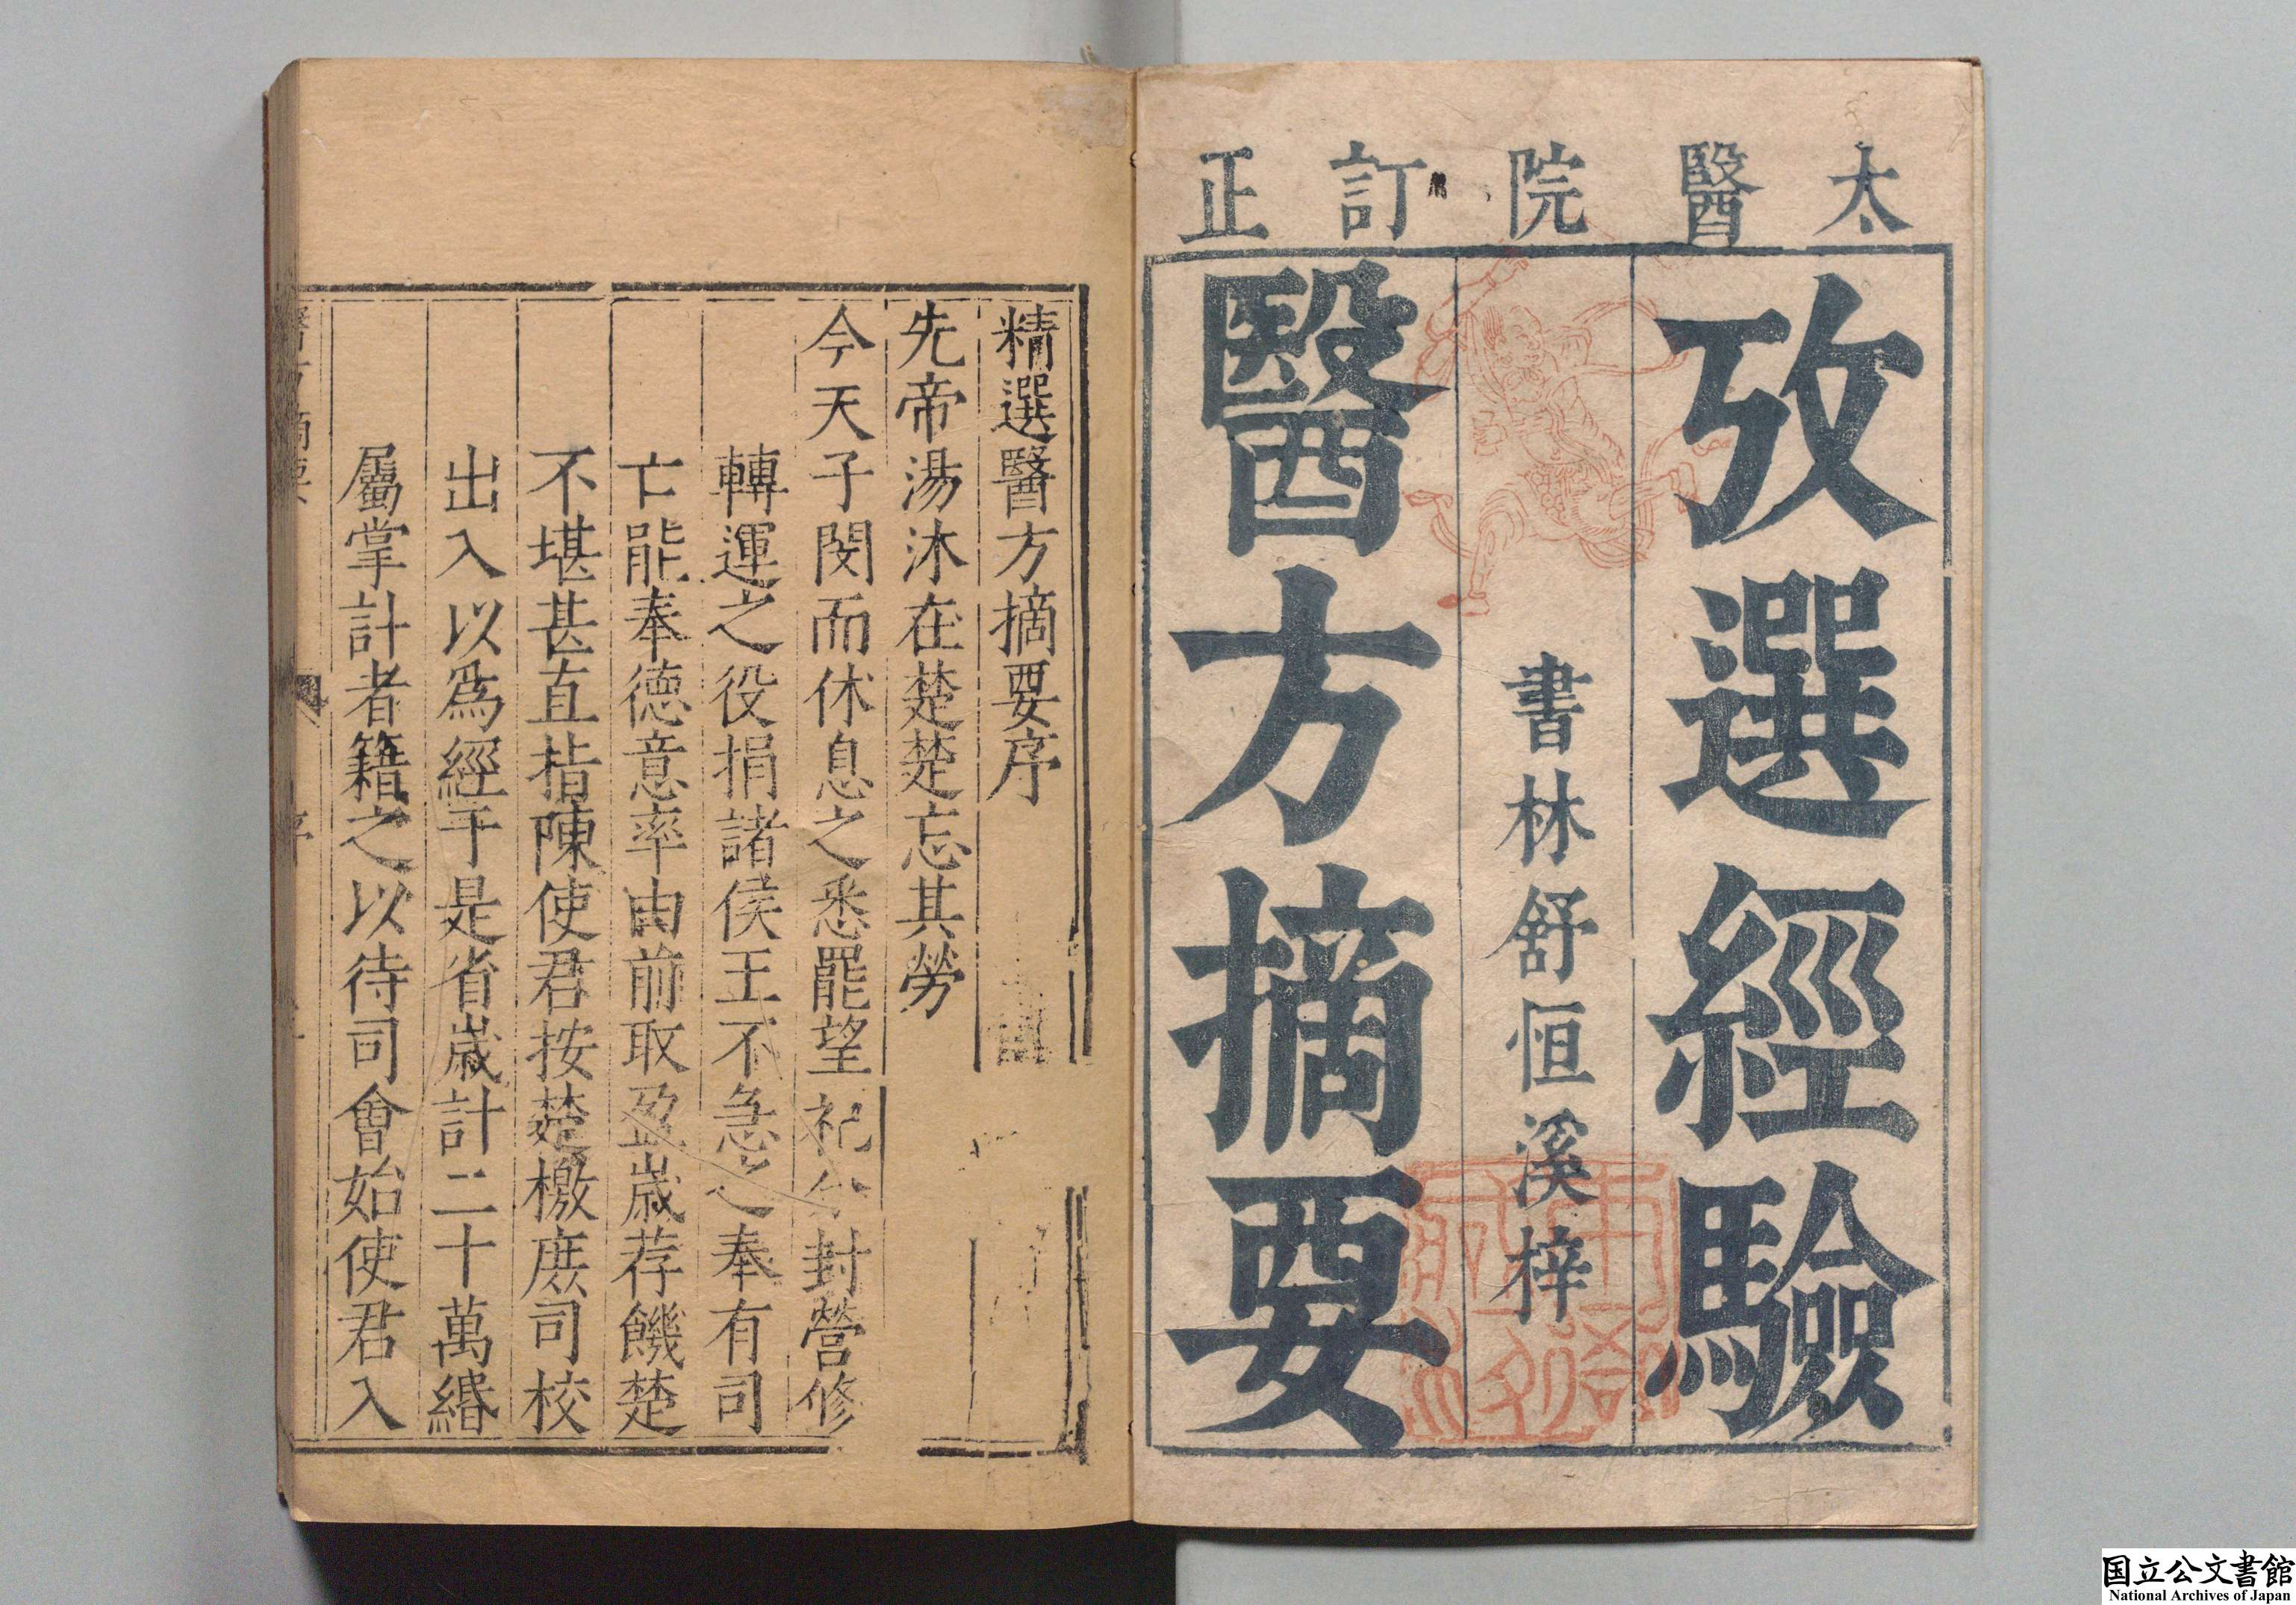 太醫院訂正
攷選經驗
書林舒恒溪梓
醫方摘要
精選醫方摘要序
先帝湯沐在楚楚忘其勞
今天子閔而休息之悉罷望祀 封營修
轉運之役捐諸侯王不急之奉有司
亡能奉德意率由前取盈歲荐饑楚
不堪甚直指陳使君按楚檄庶司校
出入以爲經于是省歲計二十萬緡
屬掌計者籍之以待司會始使君入
国立公文書館
National Archives of Japan